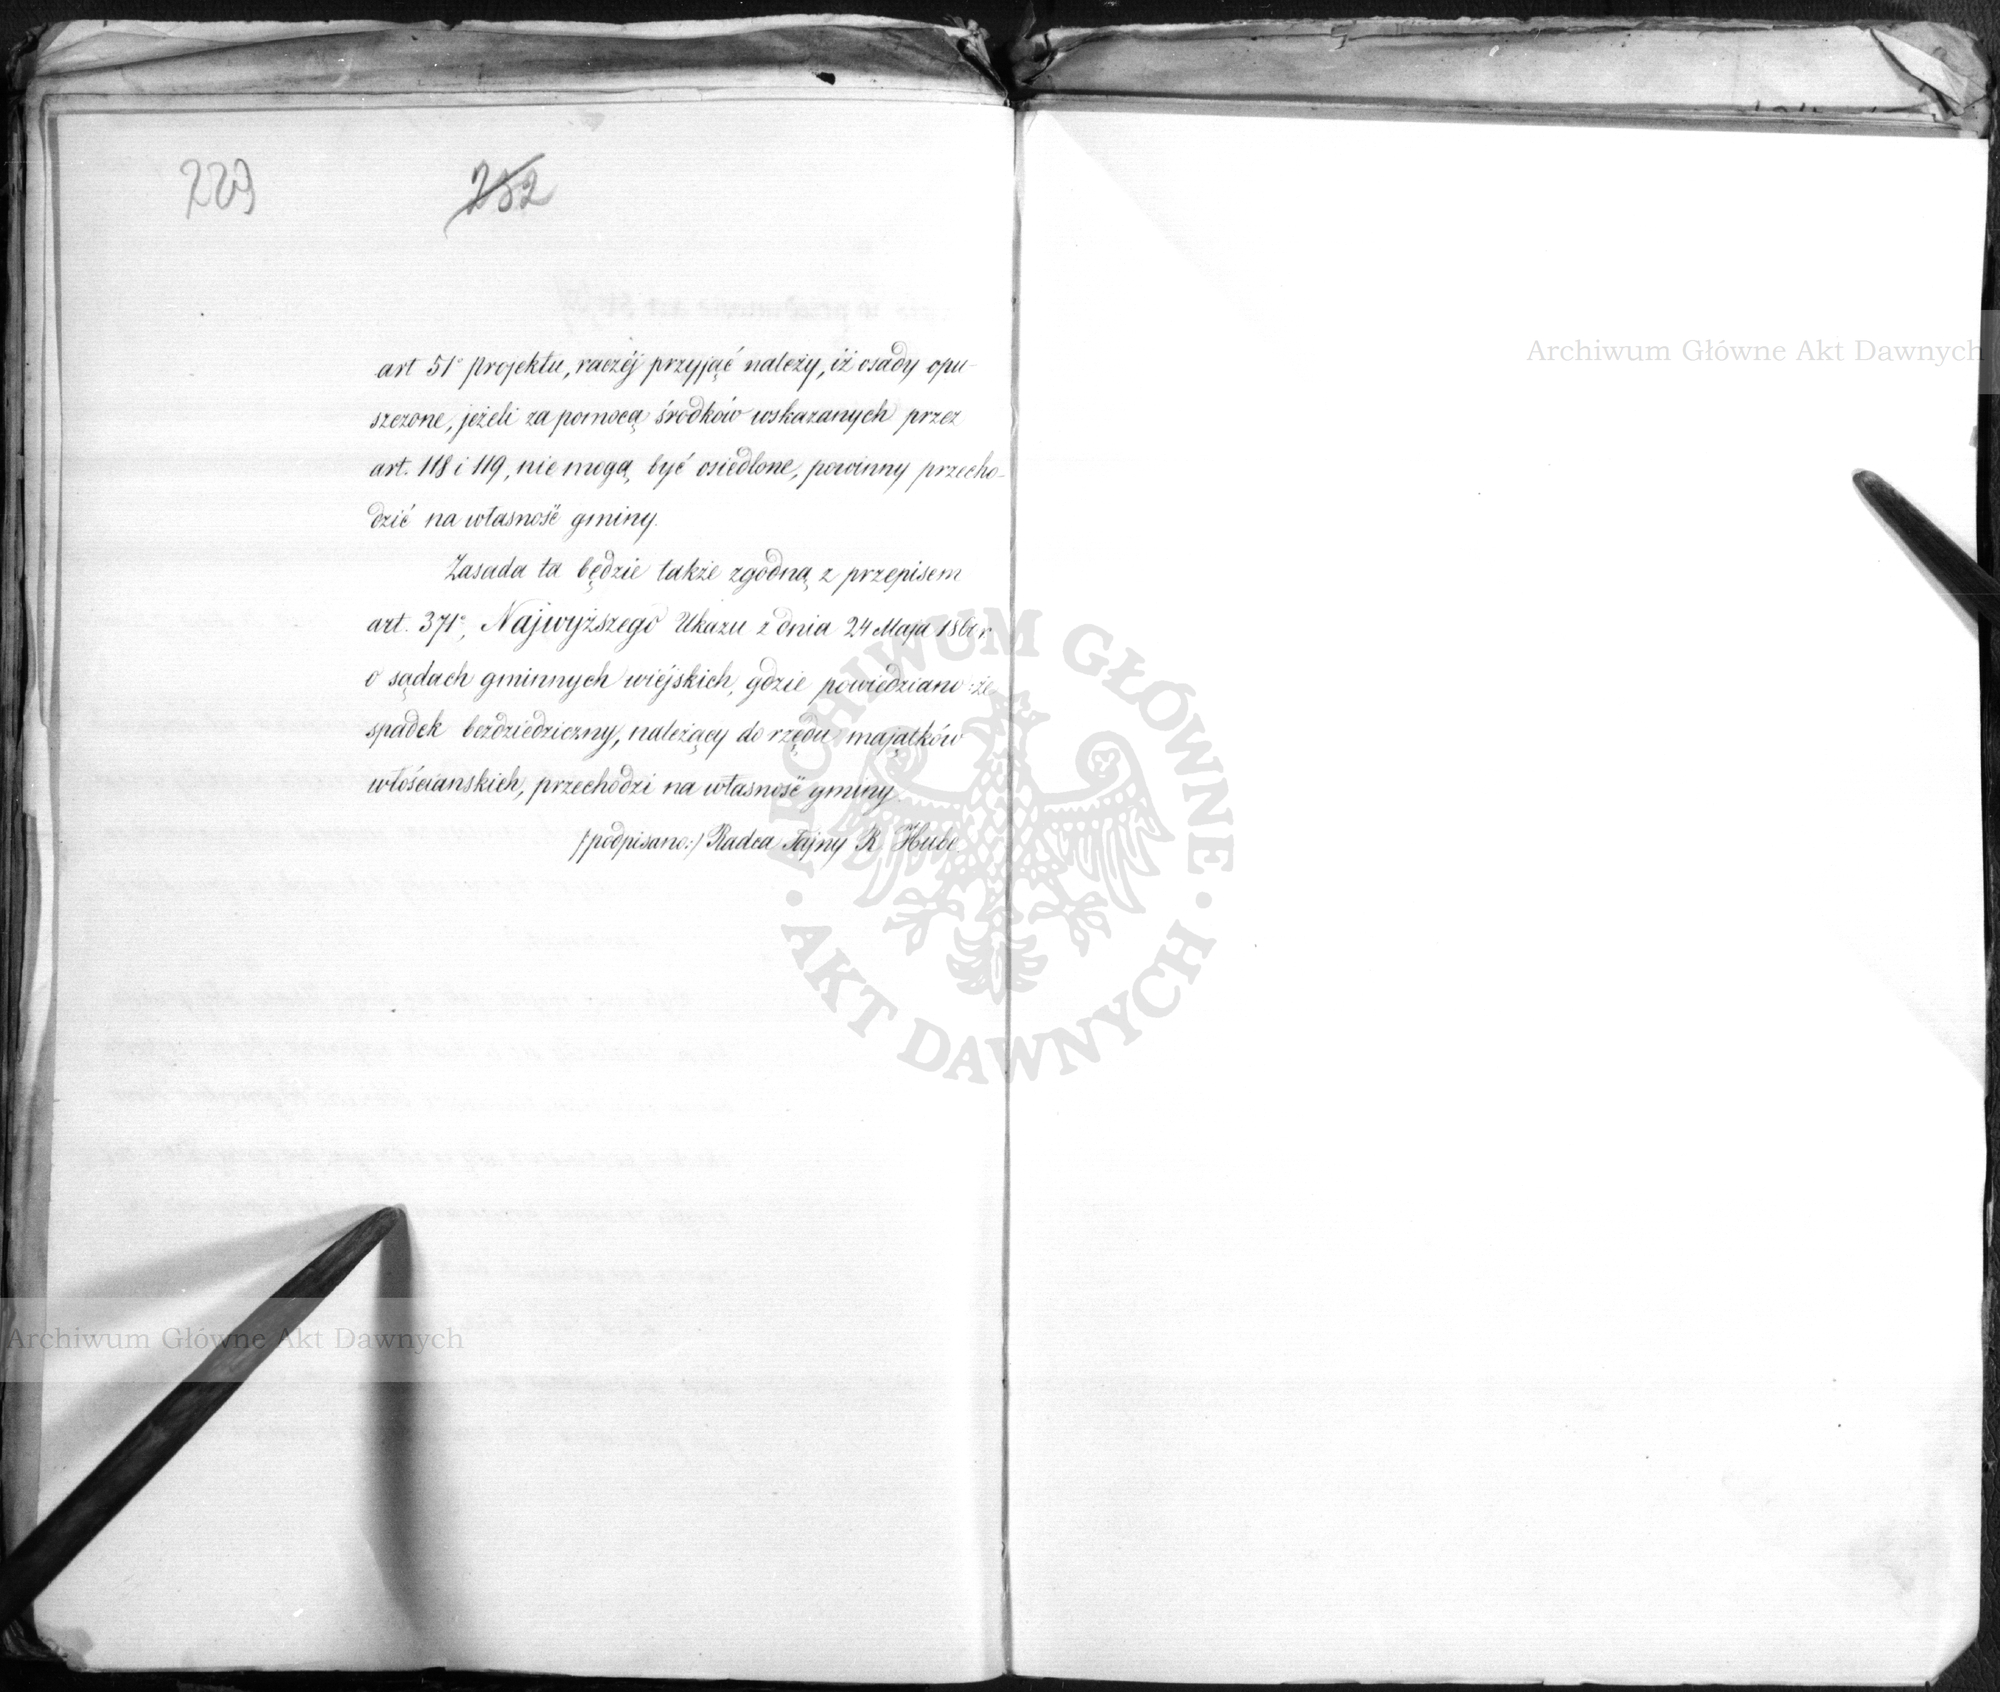 229
252
art 51° Projektu, raczéj przyjąć należy, iż osady opu-
szczone, jeżeli za pomocą środków wskazanych przez
art. 118 i 119, nie mogą być osiedlone, powinny przecho-
dzić na własność gminy.
Zasada ta będzie także zgodną z przepisem
art. 371°, Najwyższego Ukazu z dnia 24 Maja 1860 r
o sądach gminnych wiéjskich, gdzie powiedziano: że
spadek bezdziedziczny, należący do rzędu majątków
włościańskich, przechodzi na własność gminy.
/podpisano:/ Radca Tajny R. Hube.
Archiwum Główne Akt Dawnych
ARCHIWUM GŁÓWNE
AKT DAWNYCH
Archiwum Główne Akt Dawnych